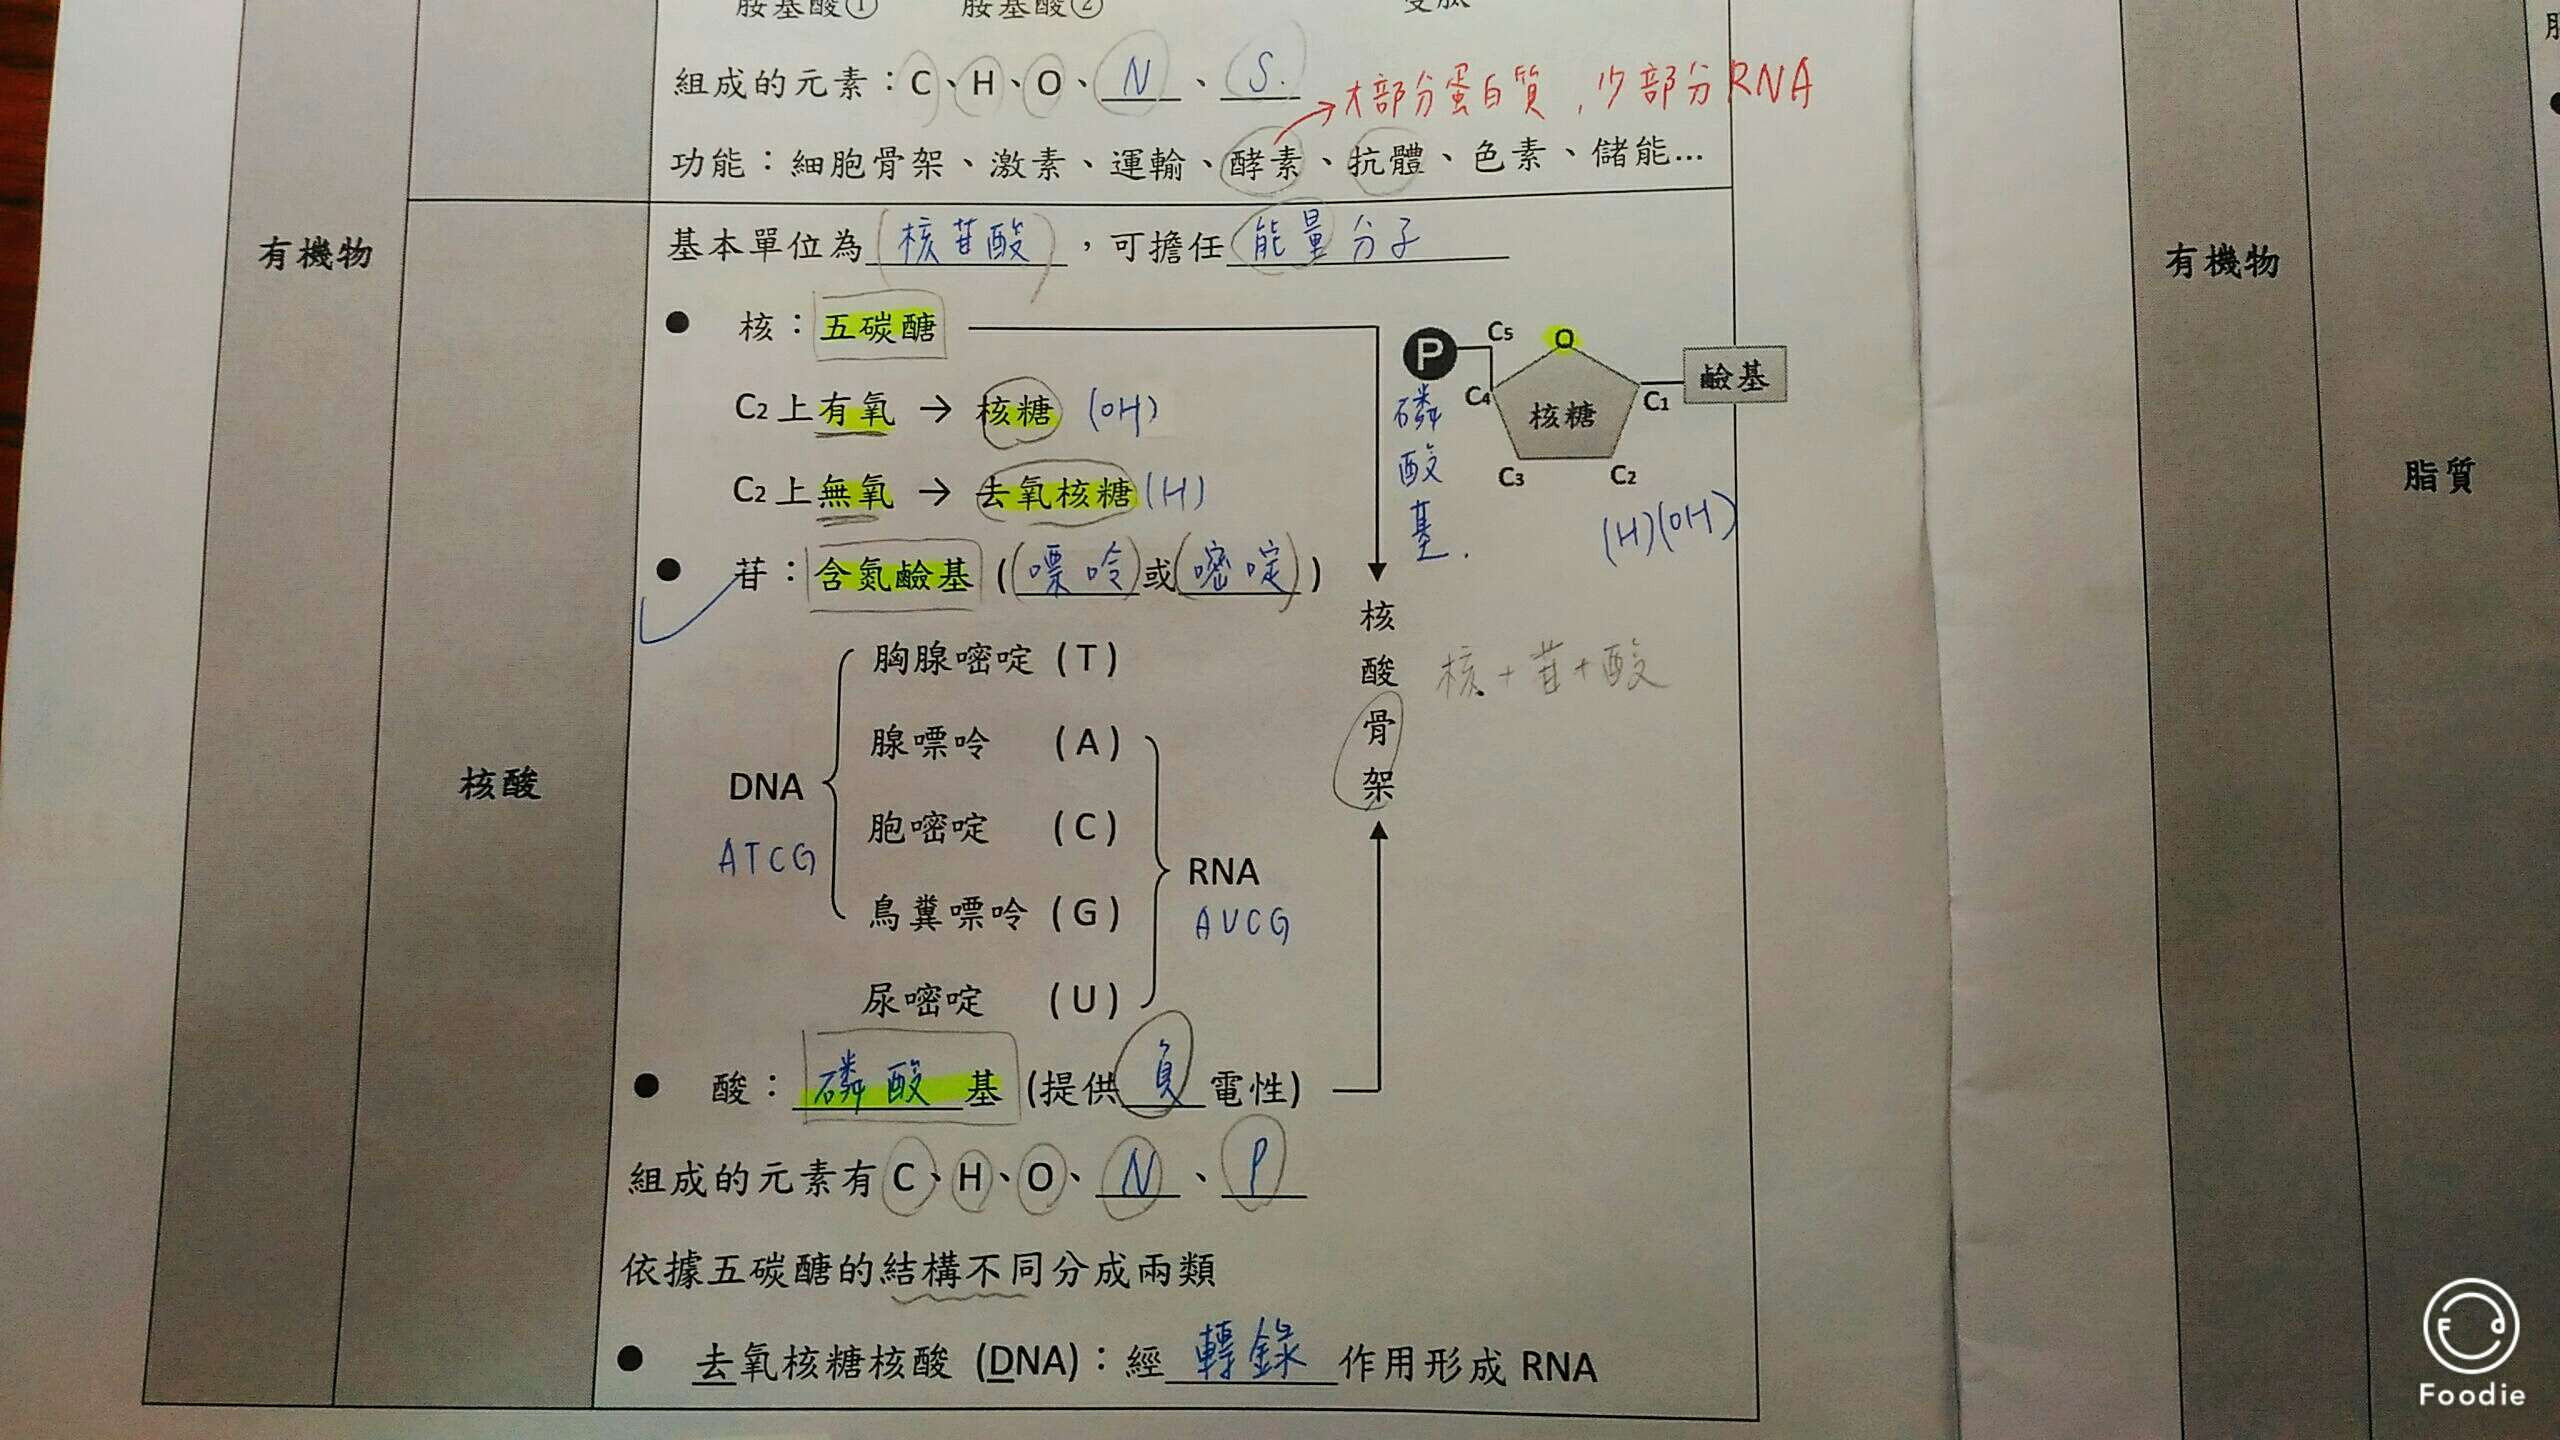 胺基酸① 胺基酸② 雙肽
組成的元素：C、H、O、N、S.
大部分蛋白質，少部分RNA
功能：細胞骨架、激素、運輸、酵素、抗體、色素、儲能…
有機物
核酸
基本單位為核苷酸，可擔任能量分子
● 核：五碳醣
C2上有氧 → 核糖 (OH)
C2上無氧 → 去氧核糖 (H)
P C5 O 鹼基
C4 核糖 C1
C3 C2
磷酸基.
(H)(OH)
● 苷：含氮鹼基 (嘌呤或嘧啶)
胸腺嘧啶 (T)
腺嘌呤 (A)
DNA
胞嘧啶 (C)
ATCG
RNA
鳥糞嘌呤 (G)
AUCG
尿嘧啶 (U)
核酸骨架
核+苷+酸
● 酸：磷酸基 (提供負電性)
組成的元素有C、H、O、N、P
依據五碳醣的結構不同分成兩類
● 去氧核糖核酸 (DNA)：經轉錄作用形成 RNA
有機物
脂質
Foodie